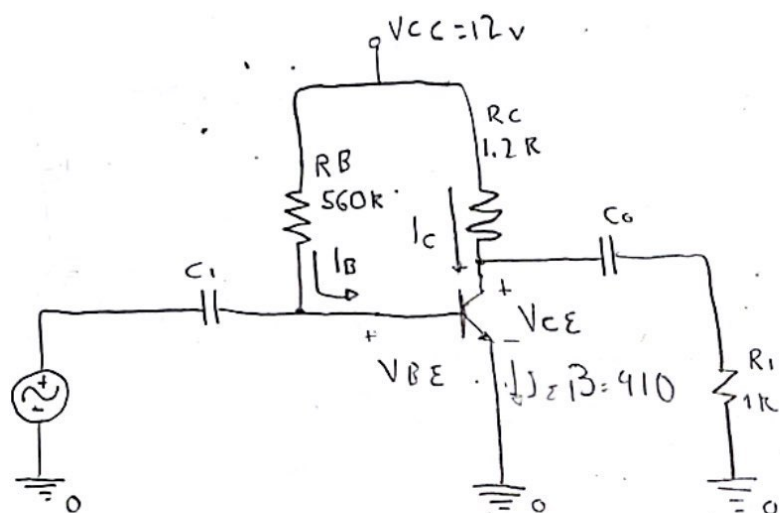 VCC=12v
RC
1.2R
RB
560k
IB
IC
C1
C0
+
VCE
-
+
VBE
IE β=410
R1
1k
+
-
0
0
0